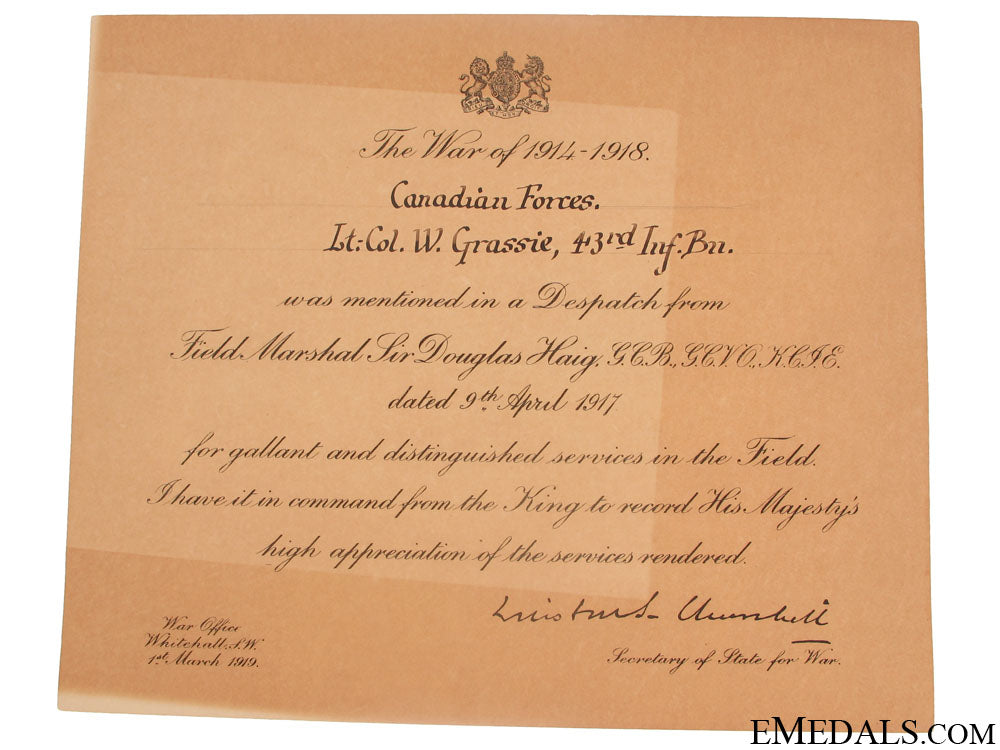 The War of 1914-1918.
Canadian Forces.
Lt:Col. W. Grassie, 43rd Inf. Bn.
was mentioned in a Despatch from
Field Marshal Sir Douglas Haig, G.C.B., G.C.V.O., K.C.I.E.
dated 9th April 1917
for gallant and distinguished services in the Field.
I have it in command from the King to record His Majesty's
high appreciation of the services rendered.
Winston S. Churchill
War Office
Whitehall, S.W.
1st March 1919.
Secretary of State for War.
EMEDALS.COM